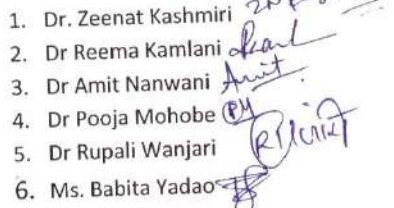 1. Dr. Zeenat Kashmiri
2. Dr Reema Kamlani
3. Dr Amit Nanwani Amit
4. Dr Pooja Mohobe PM
5. Dr Rupali Wanjari
6. Ms. Babita Yadao